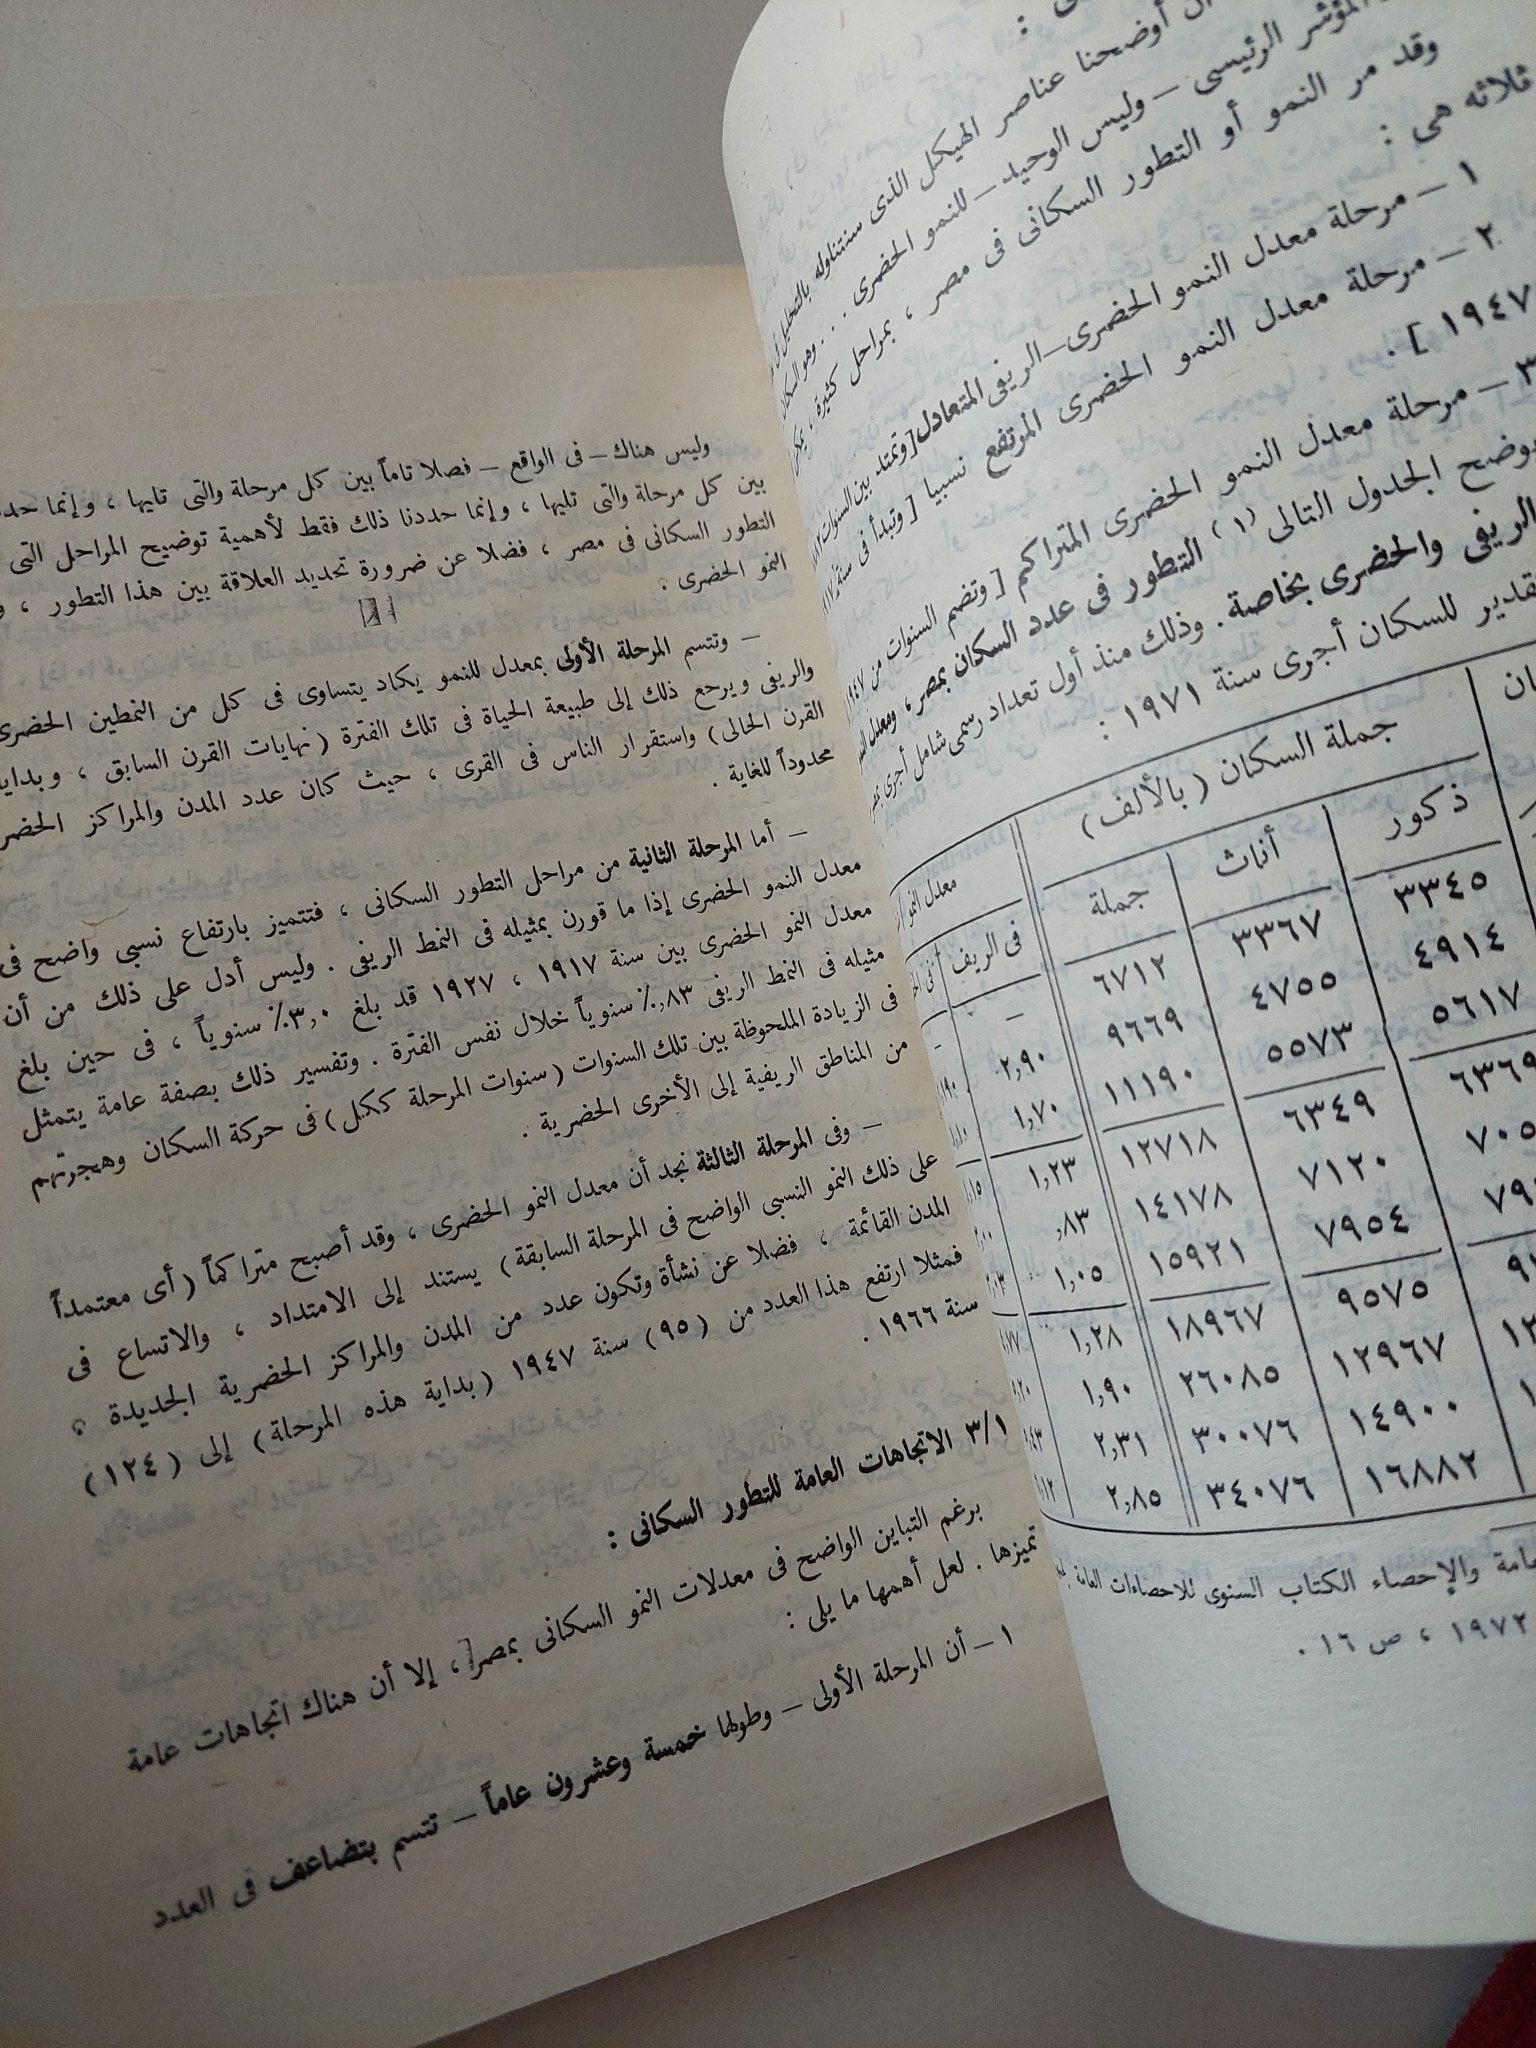 أن أوضحنا عناصر الهيكل الذى سنتناوله بالتحليل
المؤشر الرئيسى – وليس الوحيد – للنمو الحضرى . . . وهو السكان
وقد مر النمو أو التطور السكانى فى مصر ، بمراحل كثيرة ، يمكن
ثلاثه هى :
١ – مرحلة معدل النمو الحضرى–الريفى المتعادل [وتمتد بين السنوات
٢ – مرحلة معدل النمو الحضرى المرتفع نسبيا [ وتبدأ فى سنة
١٩٤٧ ] .
٣ – مرحلة معدل النمو الحضرى المتراكم [ وتضم السنوات من ١٩٤٧
يوضح الجدول التالى (١) التطور فى عدد السكان بمصر ، ومعدل
الريفى والحضرى بخاصة . وذلك منذ أول تعداد رسمى شامل أجرى
للسكان أجرى سنة ١٩٧١ :
جملة السكان ( بالألف ) معدل النمو
ذكور أناث جملة فى الريف
٣٣٤٥ ٣٣٦٧ ٦٧١٢ –
٤٩١٤ ٤٧٥٥ ٩٦٦٩ ٢,٩٠
٥٦١٧ ٥٥٧٣ ١١١٩٠ ١,٧٠
٦٣٦٩ ٦٣٤٩ ١٢٧١٨ ١,٢٣
٧١٢٠ ١٤١٧٨ ,٨٣
٧٩٥٤ ١٥٩٢١ ١,٠٥
٩٥٧٥ ١٨٩٦٧ ١,٢٨
١٢٩٦٧ ٢٦٠٨٥ ١,٩٠
١٤٩٠٠ ٣٠٠٧٦ ٢,٣١
١٦٨٨٢ ٣٤٠٧٦ ٢,٨٥
والإحصاء الكتاب السنوى للاحصاءات العامة
١٩٧٢ ، ص ١٦ .
وليس هناك – فى الواقع – فصلا تاماً بين كل مرحلة والتى تليها ، وإنما
بين كل مرحلة والتى تليها ، وإنما حددنا ذلك فقط لأهمية توضيح المراحل التى
التطور السكانى فى مصر ، فضلا عن ضرورة تحديد العلاقة بين هذا التطور ،
النمو الحضرى .
– وتتسم المرحلة الأولى بمعدل للنمو يكاد يتساوى فى كل من النمطين الحضرى
والريفى ويرجع ذلك إلى طبيعة الحياة فى تلك الفترة (نهايات القرن السابق ، وبدايات
القرن الحالى) واستقرار الناس فى القرى ، حيث كان عدد المدن والمراكز
محدوداً للغاية .
– أما المرحلة الثانية من مراحل التطور السكانى ، فتتميز بارتفاع نسبى واضح فى
معدل النمو الحضرى إذا ما قورن بمثيله فى النمط الريفى . وليس أدل على ذلك من أن
معدل النمو الحضرى بين سنة ١٩١٧ ، ١٩٢٧ قد بلغ ٣,٠٪ سنوياً ، فى حين بلغ
مثيله فى النمط الريفى ٨٣,٪ سنوياً خلال نفس الفترة . وتفسير ذلك بصفة عامة يتمثل
فى الزيادة الملحوظة بين تلك السنوات (سنوات المرحلة ككل) فى حركة السكان وهجرتهم
من المناطق الريفية إلى الأخرى الحضرية .
– وفى المرحلة الثالثة نجد أن معدل النمو الحضرى ، وقد أصبح متراكماً ( أى معتمداً
على ذلك النمو النسبى الواضح فى المرحلة السابقة) يستند إلى الامتداد ، والاتساع فى
المدن القائمة ، فضلا عن نشأة وتكون عدد من المدن والمراكز الحضرية الجديدة ؛
فمثلا ارتفع هذا العدد من (٩٥) سنة ١٩٤٧ (بداية هذه المرحلة) إلى (١٢٤)
سنة ١٩٦٦ .
٣/١ الاتجاهات العامة للتطور السكانى :
برغم التباين الواضح فى معدلات النمو السكانى بمصر ، إلا أن هناك اتجاهات عامة
تميزها . لعل أهمها ما يلى :
١ – أن المرحلة الأولى – وطولها خمسة وعشرون عاماً – تتسم بتضاعف فى العدد